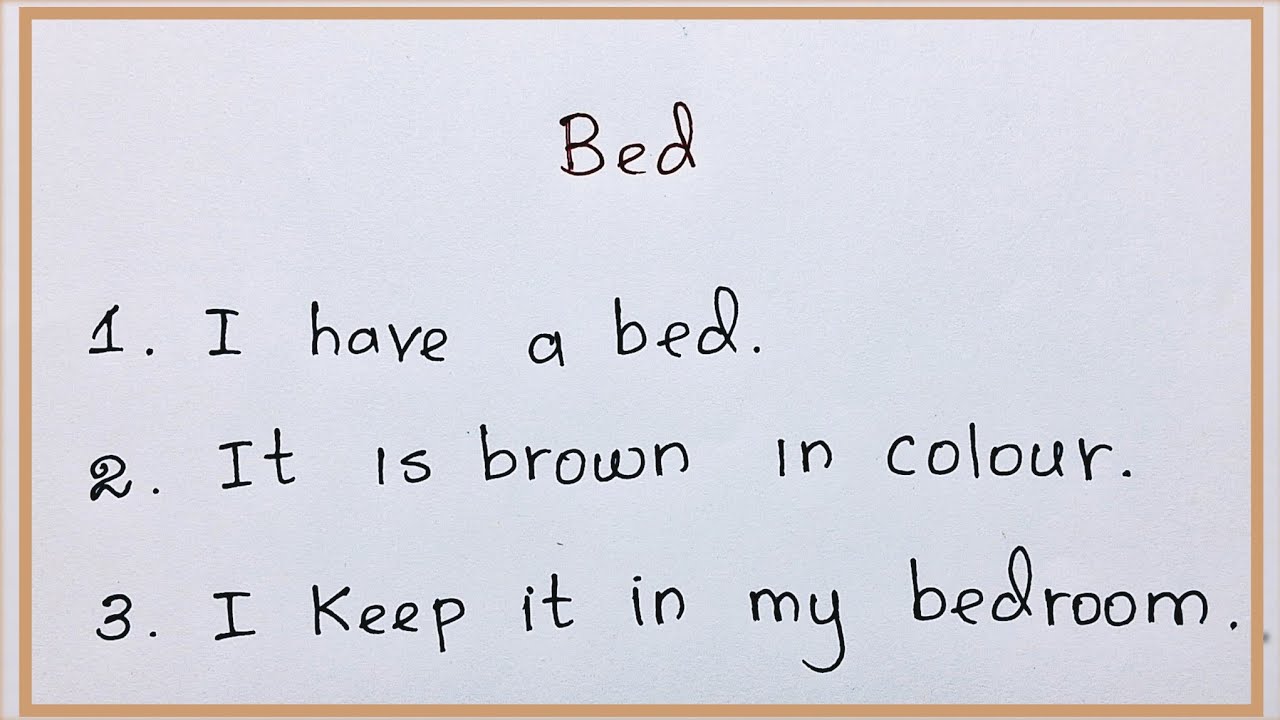 Bed
1. I have a bed.
2. It is brown in colour.
3. I Keep it in my bedroom.